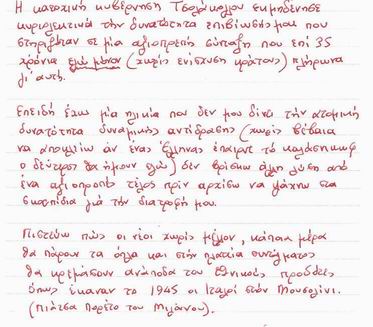 Η κατοχική κυβέρνηση Τσολάκογλου εκμηδένησε
κυριολεκτικά την δυνατότητα επιβίωσής μου που
στηριζόταν σε μια αξιοπρεπή σύνταξη που επί 35
χρόνια εγώ μόνον (χωρίς ενίσχυση κράτους) πλήρωνα
γι' αυτή.
Επειδή έχω μία ηλικία που δεν μου δίνει την ατομική
δυνατότητα δυναμικής αντίδρασης (χωρίς βέβαια
να αποκλείω αν ένας έλληνας έπαιρνε το καλάσνικωφ
ο δεύτερος θα ήμουν εγώ) δεν βρίσκω άλλη λύση από
ένα αξιοπρεπές τέλος πριν αρχίσω να ψάχνω στα
σκουπίδια για την διατροφή μου.
Πιστεύω πως οι νέοι χωρίς μέλλον, κάποια μέρα
θα πάρουν τα όπλα και στην πλατεία συντάγματος
θα κρεμάσουν ανάποδα τους εθνικούς προδότες
όπως έκαναν το 1945 οι Ιταλοί στον Μουσολίνι.
(Πιάτσα Πορέτο του Μιλάνου).